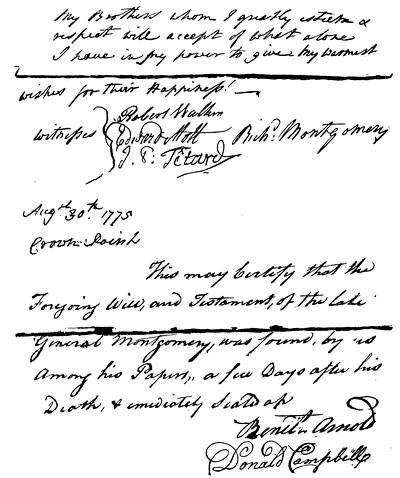 My Brothers whom I greatly esteem &
respect will accept of what alone
I have in my power to give my warmest
wishes for their Happiness!
Robert Walker
witnesses Edward Mott Richd. Montgomery
J. P. Tétard
Augst 30.th 1775
Crown Point
This may Certify that the
Foregoing Will, and Testament, of the Late
General Montgomery, was found, by us
Among his Papers, a few Days after his
Death, & emediately Seald up
Benedt Arnold
Donald Campbell